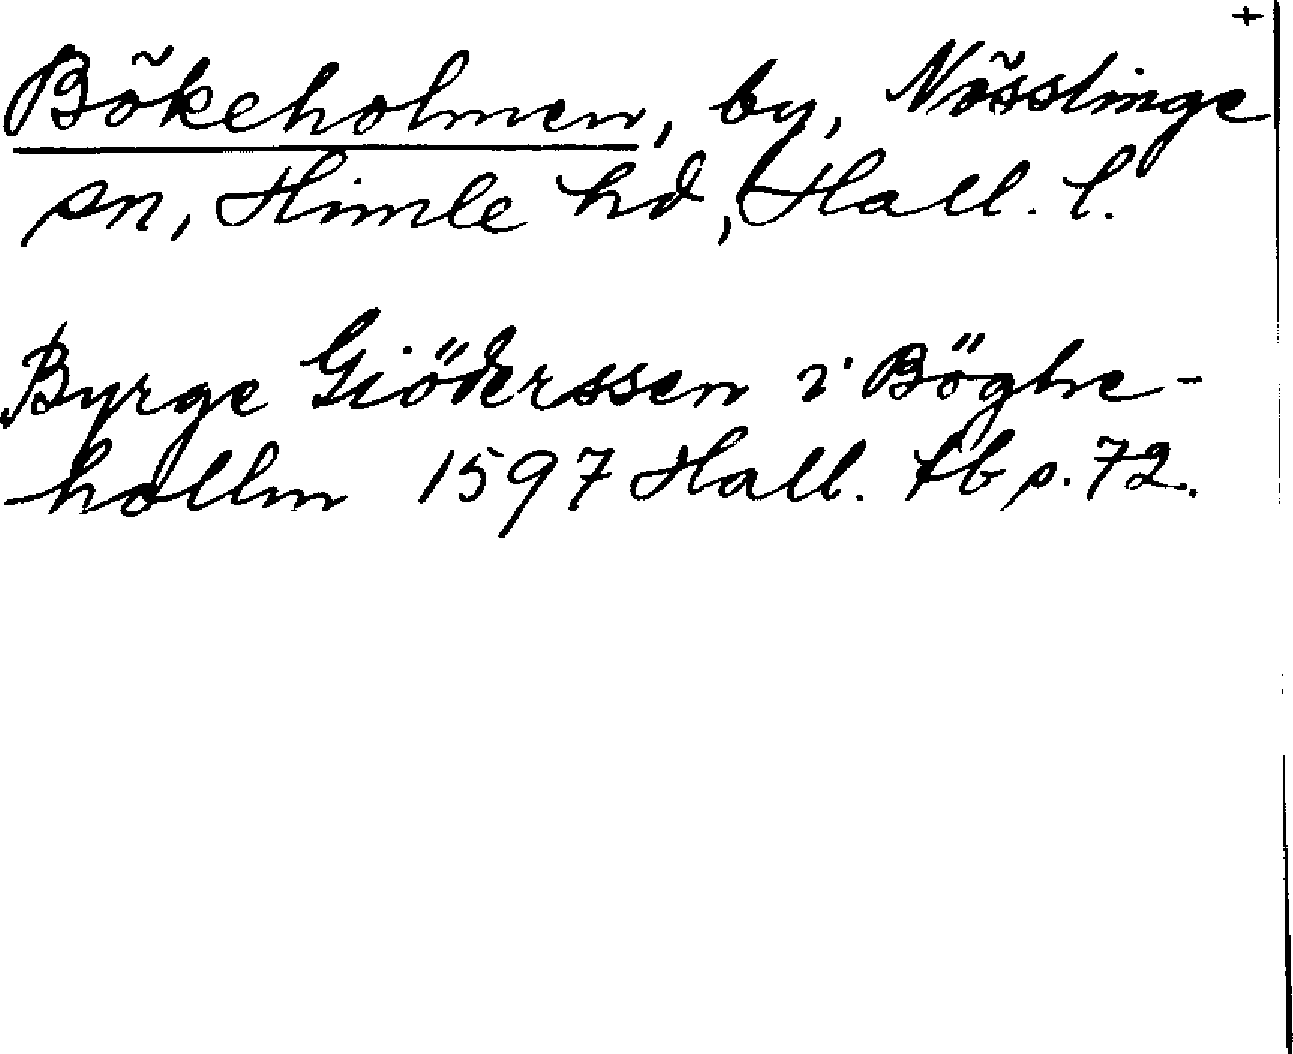 +
Bökeholmen, by, Nösslinge
sn, Himle hd, Hall. l.
Byrge Giöderssen i Böghe-
hollm 1597 Hall. tb s. 72.